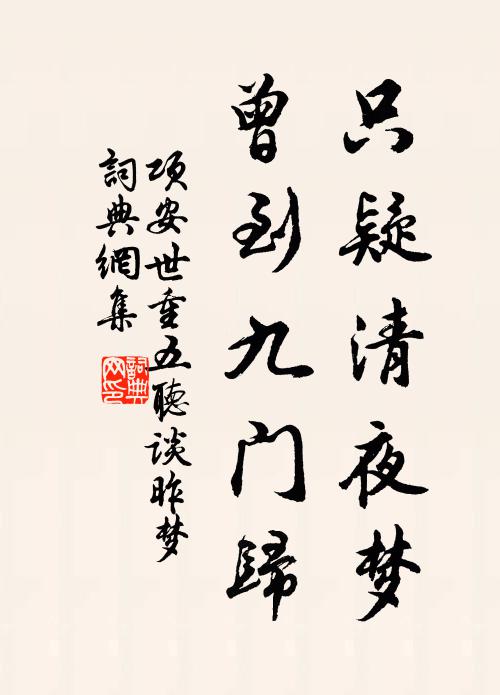 只疑清夜梦
曾到九门歸
项安世重五聽谈昨梦
詞典網集
詞典网印